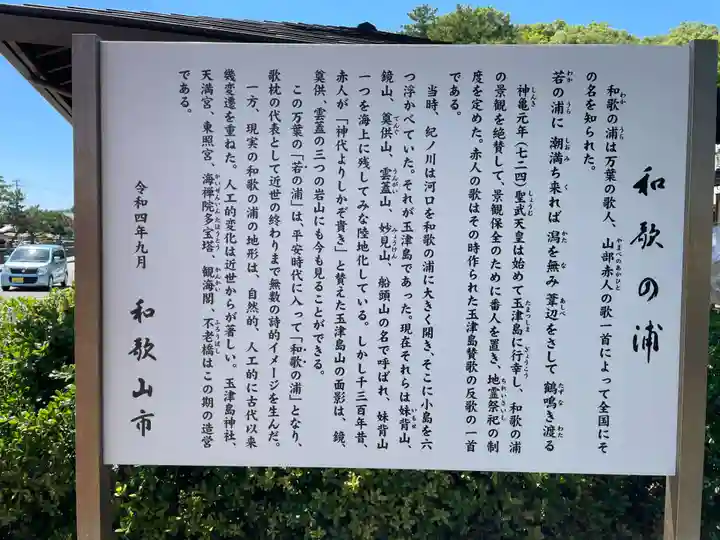 和歌の浦
和歌の浦は万葉の歌人、山部赤人の歌一首によって全国にそ
の名を知られた。
若の浦に 潮満ち来れば 潟を無み 葦辺をさして 鶴鳴き渡る
神亀元年(七二四)聖武天皇は始めて玉津島に行幸し、和歌の浦
の景観を絶賛して、景観保全のために番人を置き、地霊祭祀の制
度を定めた。赤人の歌はその時作られた玉津島賛歌の反歌の一首
である。
当時、紀ノ川は河口を和歌の浦に大きく開き、そこに小島を六
つ浮かべていた。それが玉津島であった。現在それらは妹背山、
鏡山、奠供山、雲蓋山、妙見山、船頭山の名で呼ばれ、妹背山
一つを海上に残してみな陸地化している。しかし千三百年昔、
赤人が「神代よりしかぞ貴き」と賛えた玉津島山の面影は、鏡、
奠供、雲蓋の三つの岩山にも今も見ることができる。
この万葉の「若の浦」は、平安時代に入って「和歌の浦」となり、
歌枕の代表として近世の終わりまで無数の詩的イメージを生んだ。
一方、現実の和歌の浦の地形は、自然的、人工的に古代以来
幾変遷を重ねた。人工的変化は近世からが著しい。玉津島神社、
天満宮、東照宮、海禅院多宝塔、観海閣、不老橋はこの期の造営
である。
令和四年九月 和歌山市